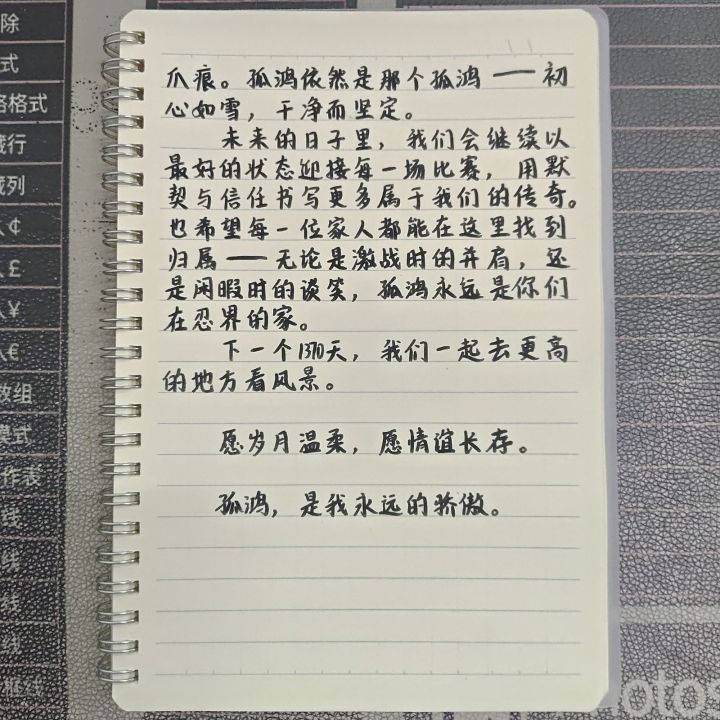 爪痕。孤鸿依然是那个孤鸿——初
心如雪，干净而坚定。
未来的日子里，我们会继续以
最好的状态迎接每一场比赛，用默
契与信任书写更多属于我们的传奇。
也希望每一位家人都能在这里找到
归属——无论是激战时的并肩，还
是闲暇时的谈笑，孤鸿永远是你们
在忍界的家。
下一个1370天，我们一起去更高
的地方看风景。
愿岁月温柔，愿情谊长存。
孤鸿，是我永远的骄傲。
除
式
格格式
藏行
藏列
入¢
入£
入¥
入€
数组
模式
作表
线
线
线
线
框线
otos